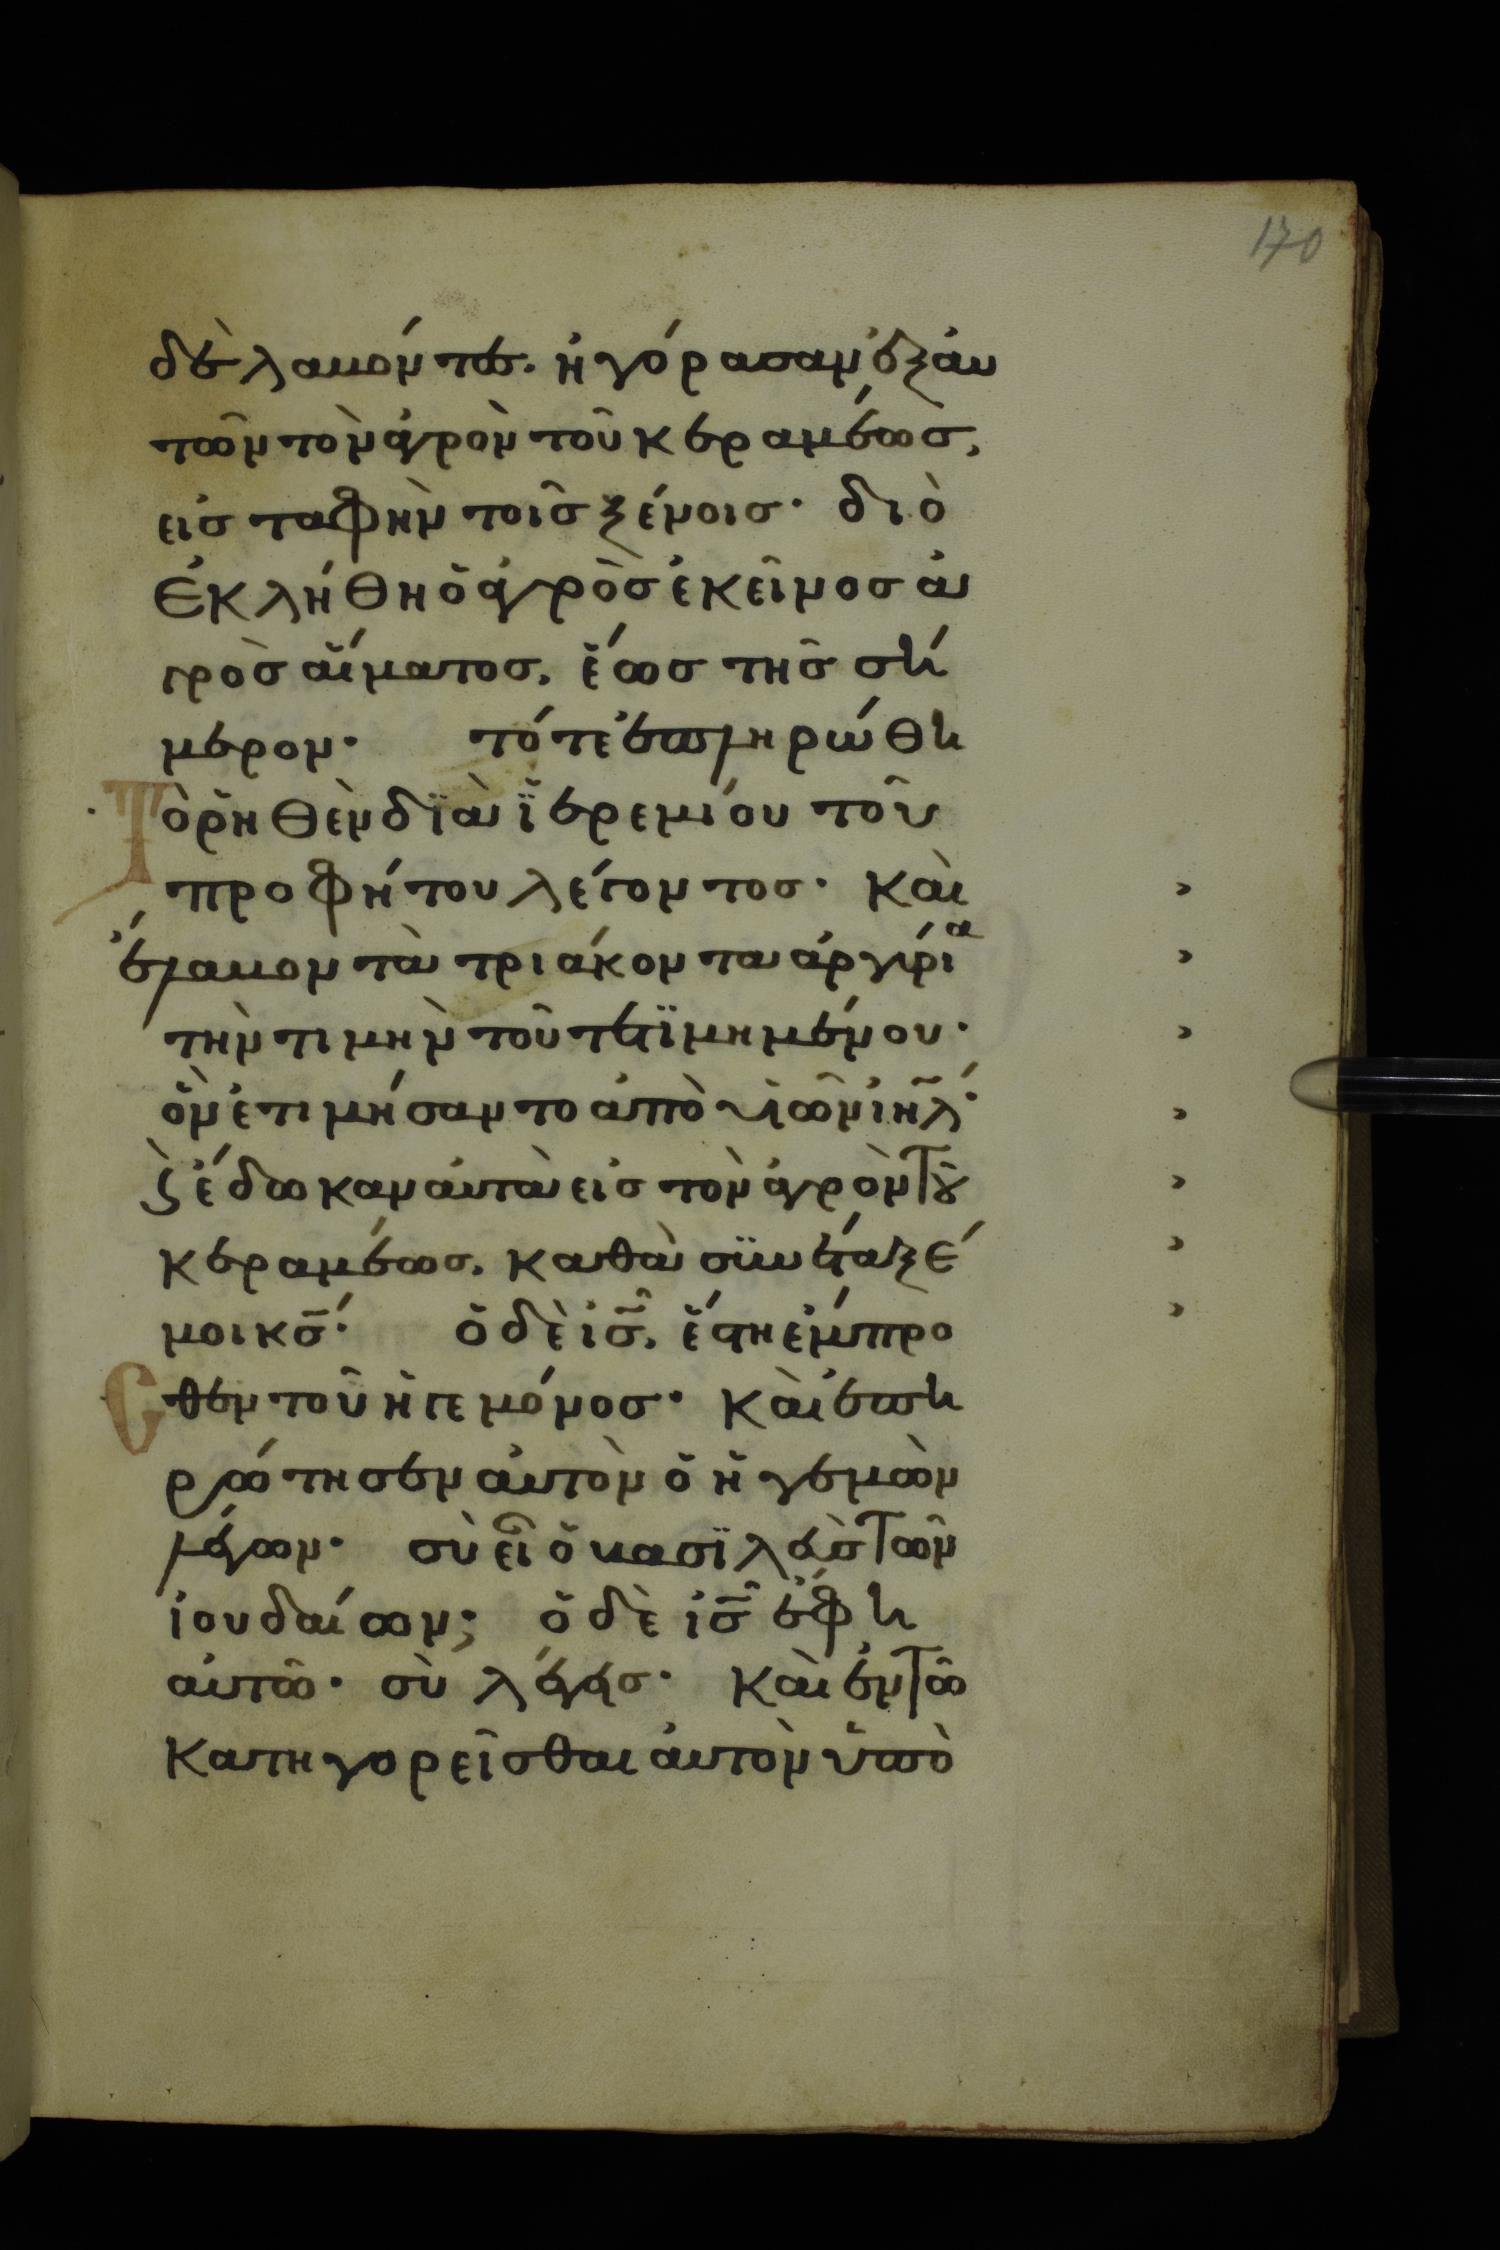 170
δὲ λαβόντες. ἠγόρασαν ἐξ αὐ
τῶν τὸν ἀγρὸν τοῦ κεραμέωσ,
εἰσ ταφὴν τοῖσ ξένοισ· διὸ
ἐκλήθη ὁ ἀγρὸσ ἐκεῖνοσ ἀ
γρὸσ αἵματοσ. ἕωσ τῆσ σή
μερον· τότε ἐπληρώθη
Τὸ ῥηθὲν διὰ ϊερεμίου τοῦ
προφήτου λέγοντοσ· καὶ
ἔλαβον τὰ τριάκοντα ἀργύρια
τὴν τιμὴν τοῦ τετϊμημένου·
ὃν ἐτιμήσαντο ἀπὸ υἱῶν ἰηλ̅·
ϗ ἔδωκαν αὐτὰ εἰσ τὸν ἀγρὸν τοῦ
κεραμέωσ. καθὰ συνέταξέ
μοι κσ̅· ὁ δὲ ισ̅. ἔστη ἔμπρο
Cθεν τοῦ ἡγεμόνοσ· καὶ ἐπη
ρώτησεν αὐτὸν ὁ ἡγεμὼν
λέγων· σὺ εἶ ὁ βασϊλεὺσ τῶν
ἰουδαίων; ὁ δὲ ισ̅ ἔφη
αὐτῶ· σὺ λέγεισ· καὶ ἐν τῶ
κατηγορεῖσθαι αὐτὸν ὑπὸ